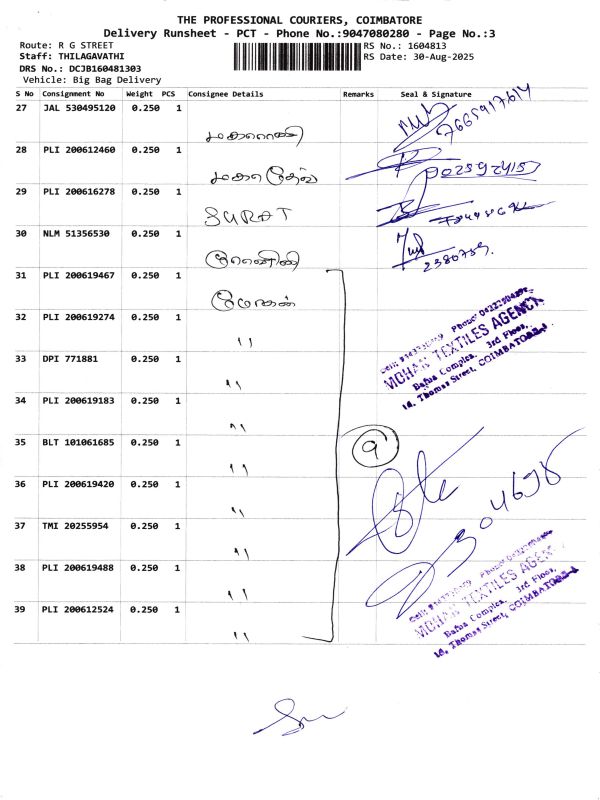 THE PROFESSIONAL COURIERS, COIMBATORE
Delivery Runsheet - PCT - Phone No.:9047080280 - Page No.:3
Route: R G STREET
RS No.: 1604813
Staff: THILAGAVATHI
RS Date: 30-Aug-2025
DRS No.: DCJB160481303
Vehicle: Big Bag Delivery
S No Consignment No Weight PCS Consignee Details Remarks Seal & Signature
27 JAL 530495120 0.250 1
7665917614
28 PLI 200612460 0.250 1
29 PLI 200616278 0.250 1 SURAT
30 NLM 51356530 0.250 1
2380789.
31 PLI 200619467 0.250 1 மோகன்
32 PLI 200619274 0.250 1 ''
MOHAN TEXTILES AGENCY
Bafna Complex, 3rd Floor,
14, Thomas Street, COIMBATORE-1
33 DPI 771881 0.250 1 ''
34 PLI 200619183 0.250 1 ''
35 BLT 101061685 0.250 1 '' 9
36 PLI 200619420 0.250 1 ''
37 TMI 20255954 0.250 1 ''
38 PLI 200619488 0.250 1 ''
MOHAN TEXTILES AGENCY
Bafna Complex, 3rd Floor,
14, Thomas Street, COIMBATORE-1
39 PLI 200612524 0.250 1 ''